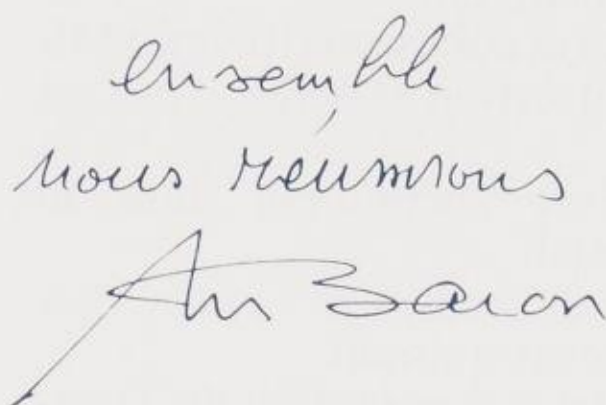 ensemble
nous réussirons
Baron